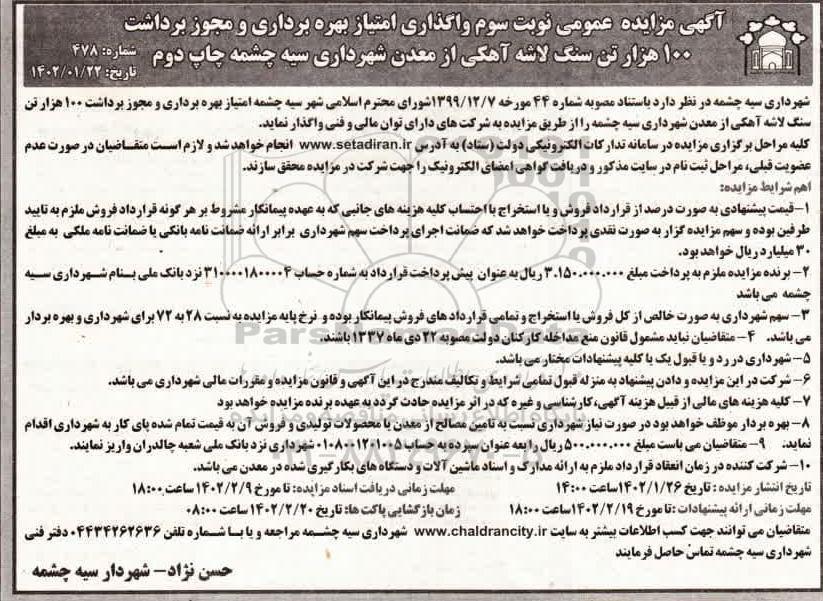 آگهی مزایده عمومی نوبت سوم واگذاری امتیاز بهره برداری و مجوز برداشت
۱۰۰ هزار تن سنگ لاشه آهکی از معدن شهرداری سیه چشمه چاپ دوم
شماره: ۴۷۸
تاریخ: ۱۴۰۲/۰۱/۲۲
شهرداری سیه چشمه در نظر دارد باستناد مصوبه شماره ۴۴ مورخه ۱۳۹۹/۱۲/۷شورای محترم اسلامی شهر سیه چشمه امتیاز بهره برداری و مجوز برداشت ۱۰۰ هزار تن
سنگ لاشه آهکی از معدن شهرداری سیه چشمه را از طریق مزایده به شرکت های دارای توان مالی و فنی واگذار نماید.
کلیه مراحل برگزاری مزایده در سامانه تدارکات الکترونیکی دولت (ستاد) به آدرس www.setadiran.ir انجام خواهد شد و لازم است متقاضیان در صورت عدم
عضویت قبلی، مراحل ثبت نام در سایت مذکور و دریافت گواهی امضای الکترونیک را جهت شرکت در مزایده محقق سازند.
اهم شرایط مزایده:
۱-قیمت پیشنهادی به صورت درصد از قرارداد فروش و یا استخراج با احتساب کلیه هزینه های جانبی که به عهده پیمانکار مشروط بر هر گونه قرارداد فروش ملزم به تایید
طرفین بوده و سهم مزایده گزار به صورت نقدی پرداخت خواهد شد که ضمانت اجرای پرداخت سهم شهرداری برابر ارائه ضمانت نامه بانکی یا ضمانت نامه ملکی به مبلغ
۳۰ میلیارد ریال خواهد بود.
۲- برنده مزایده ملزم به پرداخت مبلغ ۳.۱۵۰.۰۰۰.۰۰۰ ریال به عنوان پیش پرداخت قرارداد به شماره حساب ۳۱۰۰۰۰۱۸۰۰۰۰۴ نزد بانک ملی بنام شهرداری سیه
چشمه می باشد
۳- سهم شهرداری به صورت خالص از کل فروش یا استخراج و تمامی قرارداد های فروش پیمانکار بوده و نرخ پایه مزایده به نسبت ۲۸ به ۷۲ برای شهرداری و بهره بردار
می باشد. ۴- متقاضیان نباید مشمول قانون منع مداخله کارکنان دولت مصوبه ۲۲ دی ماه ۱۳۳۷ باشند.
۵- شهرداری در رد و یا قبول یک یا کلیه پیشنهادات مختار می باشد.
۶- شرکت در این مزایده و دادن پیشنهاد به منزله قبول تمامی شرایط و تکالیف مندرج در این آگهی و قانون مزایده و مقررات مالی شهرداری می باشد.
۷- کلیه هزینه های مالی از قبیل هزینه آگهی، کارشناسی و غیره که در اثر مزایده حادث گردد به عهده برنده مزایده خواهد بود
۸- بهره بردار موظف خواهد بود در صورت نیاز شهرداری نسبت به تامین مصالح از معدن یا محصولات تولیدی و فروش آن به قیمت تمام شده پای کار به شهرداری اقدام
نماید. ۹- متقاضیان می باست مبلغ ۵۰۰.۰۰۰.۰۰۰ ریال را بعه عنوان سپرده به حساب ۰۱۰۸۸۰۱۲۰۱۰۰۵ شهرداری نزد بانک ملی شعبه چالدران واریز نمایند.
۱۰- شرکت کننده در زمان انعقاد قرارداد ملزم به ارائه مدارک و اسناد ماشین آلات و دستگاه های بکارگیری شده در معدن می باشد.
تاریخ انتشار مزایده : تاریخ ۱۴۰۲/۱/۲۶ساعت ۱۴:۰۰ مهلت زمانی دریافت اسناد مزایده: تا مورخ ۱۴۰۲/۲/۹ ساعت ۱۸:۰۰
مهلت زمانی ارائه پیشنهادات : تا مورخ ۱۴۰۲/۲/۱۹ ساعت ۱۸:۰۰ زمان بازگشایی پاکت ها: تاریخ ۱۴۰۲/۲/۲۰ ساعت ۰۸:۰۰
متقاضیان می توانند جهت کسب اطلاعات بیشتر به سایت www.chaldrancity.ir شهرداری سیه چشمه مراجعه و یا با شماره تلفن ۰۴۴۳۴۲۶۲۶۳۶ دفتر فنی
شهرداری سیه چشمه تماس حاصل فرمایند
حسن نژاد- شهردار سیه چشمه
ParsNamadData
پایگاه اطلاع رسانی مناقصه و مزایده
۰۲۱-۸۸۳۴۹۶۷۰-۵